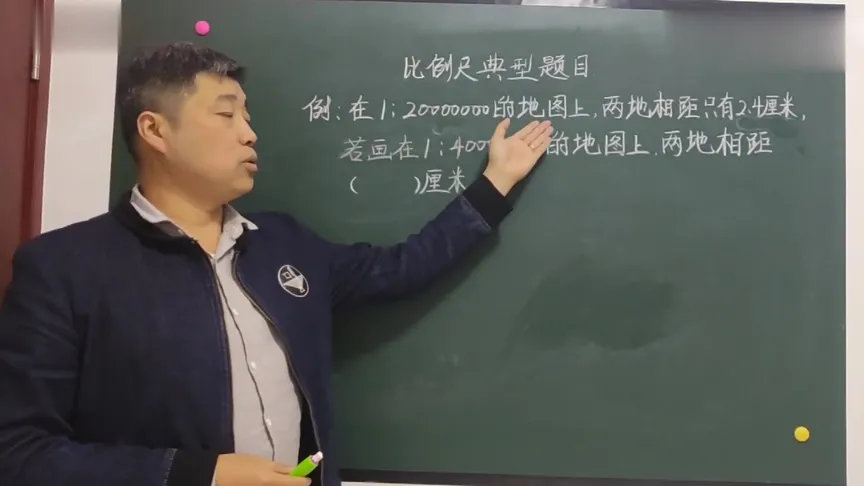 比例尺典型题目
例:在1:20000000的地图上,两地相距只有2.4厘米,
若画在1:400 的地图上,两地相距
( )厘米